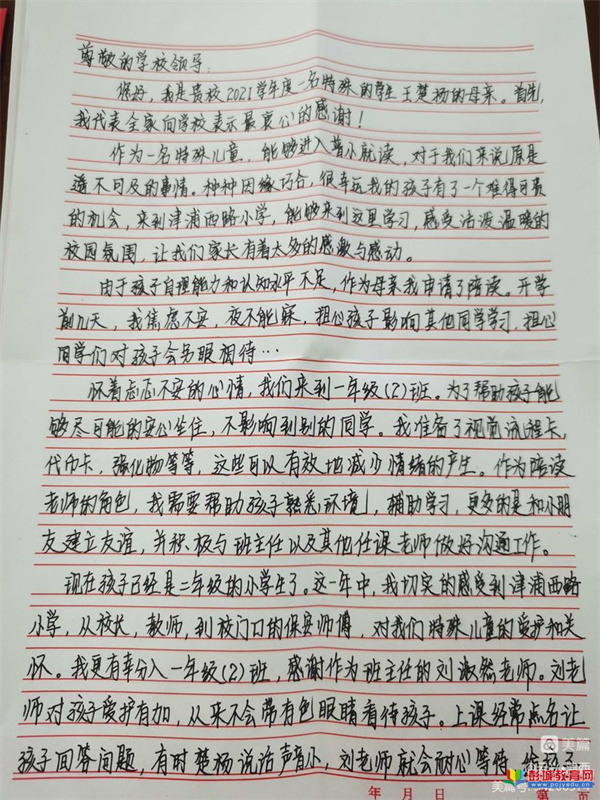 尊敬的学校领导：
您好，我是贵校2021学年度一名特殊的学生王楚杨的母亲。首先，
我代表全家向学校表示最衷心的感谢！
作为一名特殊儿童，能够进入普小就读，对于我们来说原是
遥不可及的事情。种种因缘巧合，很幸运我的孩子有了一个难得可贵
的机会，来到津浦西路小学，能够来到这里学习，感受活波温暖的
校园氛围，让我们家长有着太多的感激与感动。
由于孩子自理能力和认知水平不足，作为母亲我申请了陪读。开学
前几天，我焦虑不安，夜不能寐，担心孩子影响其他同学学习，担心
同学们对孩子会另眼相待…
怀着忐忑不安的心情，我们来到一年级（2）班。为了帮助孩子能
够尽可能的安心坐住，不影响到别的同学。我准备了视觉流程卡，
代币卡，强化物等等，这些可以有效地减少情绪的产生。作为陪读
老师的角色，我需要帮助孩子熟悉环境，辅助学习，更多的是和小朋
友建立友谊，并积极与班主任以及其他任课老师做好沟通工作。
现在孩子已经是二年级的小学生了。这一年中，我切实的感受到津浦西路
小学，从校长，教师，到校门口的保安师傅，对我们特殊儿童的爱护和关
怀。我更有幸分入一年级（2）班，感谢作为班主任的刘淑然老师。刘老
师对孩子爱护有加，从来不会带有色眼睛看待孩子。上课经常点名让
孩子回答问题，有时楚杨说话声音小，刘老师就会耐心等待
年 月 日 第 页
美篇
美篇号
彭城教育网